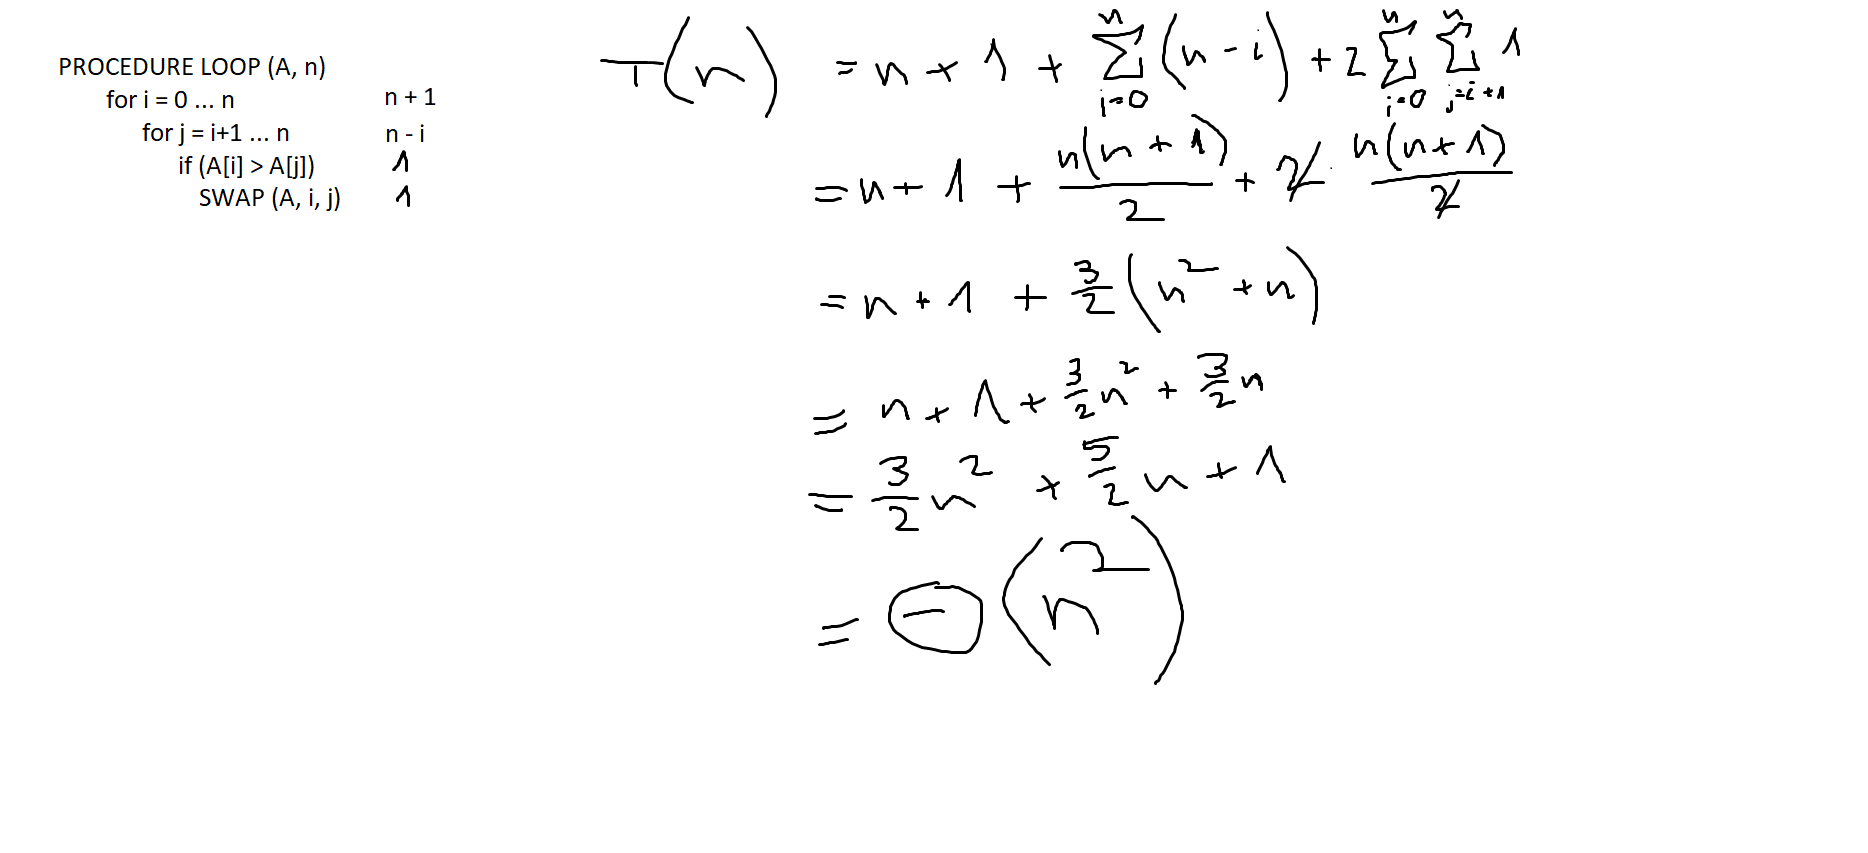 PROCEDURE LOOP (A, n)
for i = 0 ... n n + 1
for j = i+1 ... n n - i
if (A[i] > A[j]) 1
SWAP (A, i, j) 1
T(n) = n + 1 + \sum_{i=0}^{n} (n - i) + 2 \sum_{i=0}^{n} \sum_{j=i+1}^{n} 1
= n + 1 + \frac{n(n + 1)}{2} + 2 \cdot \frac{n(n + 1)}{2}
= n + 1 + \frac{3}{2} (n^2 + n)
= n + 1 + \frac{3}{2} n^2 + \frac{3}{2} n
= \frac{3}{2} n^2 + \frac{5}{2} n + 1
= Θ(n^2)